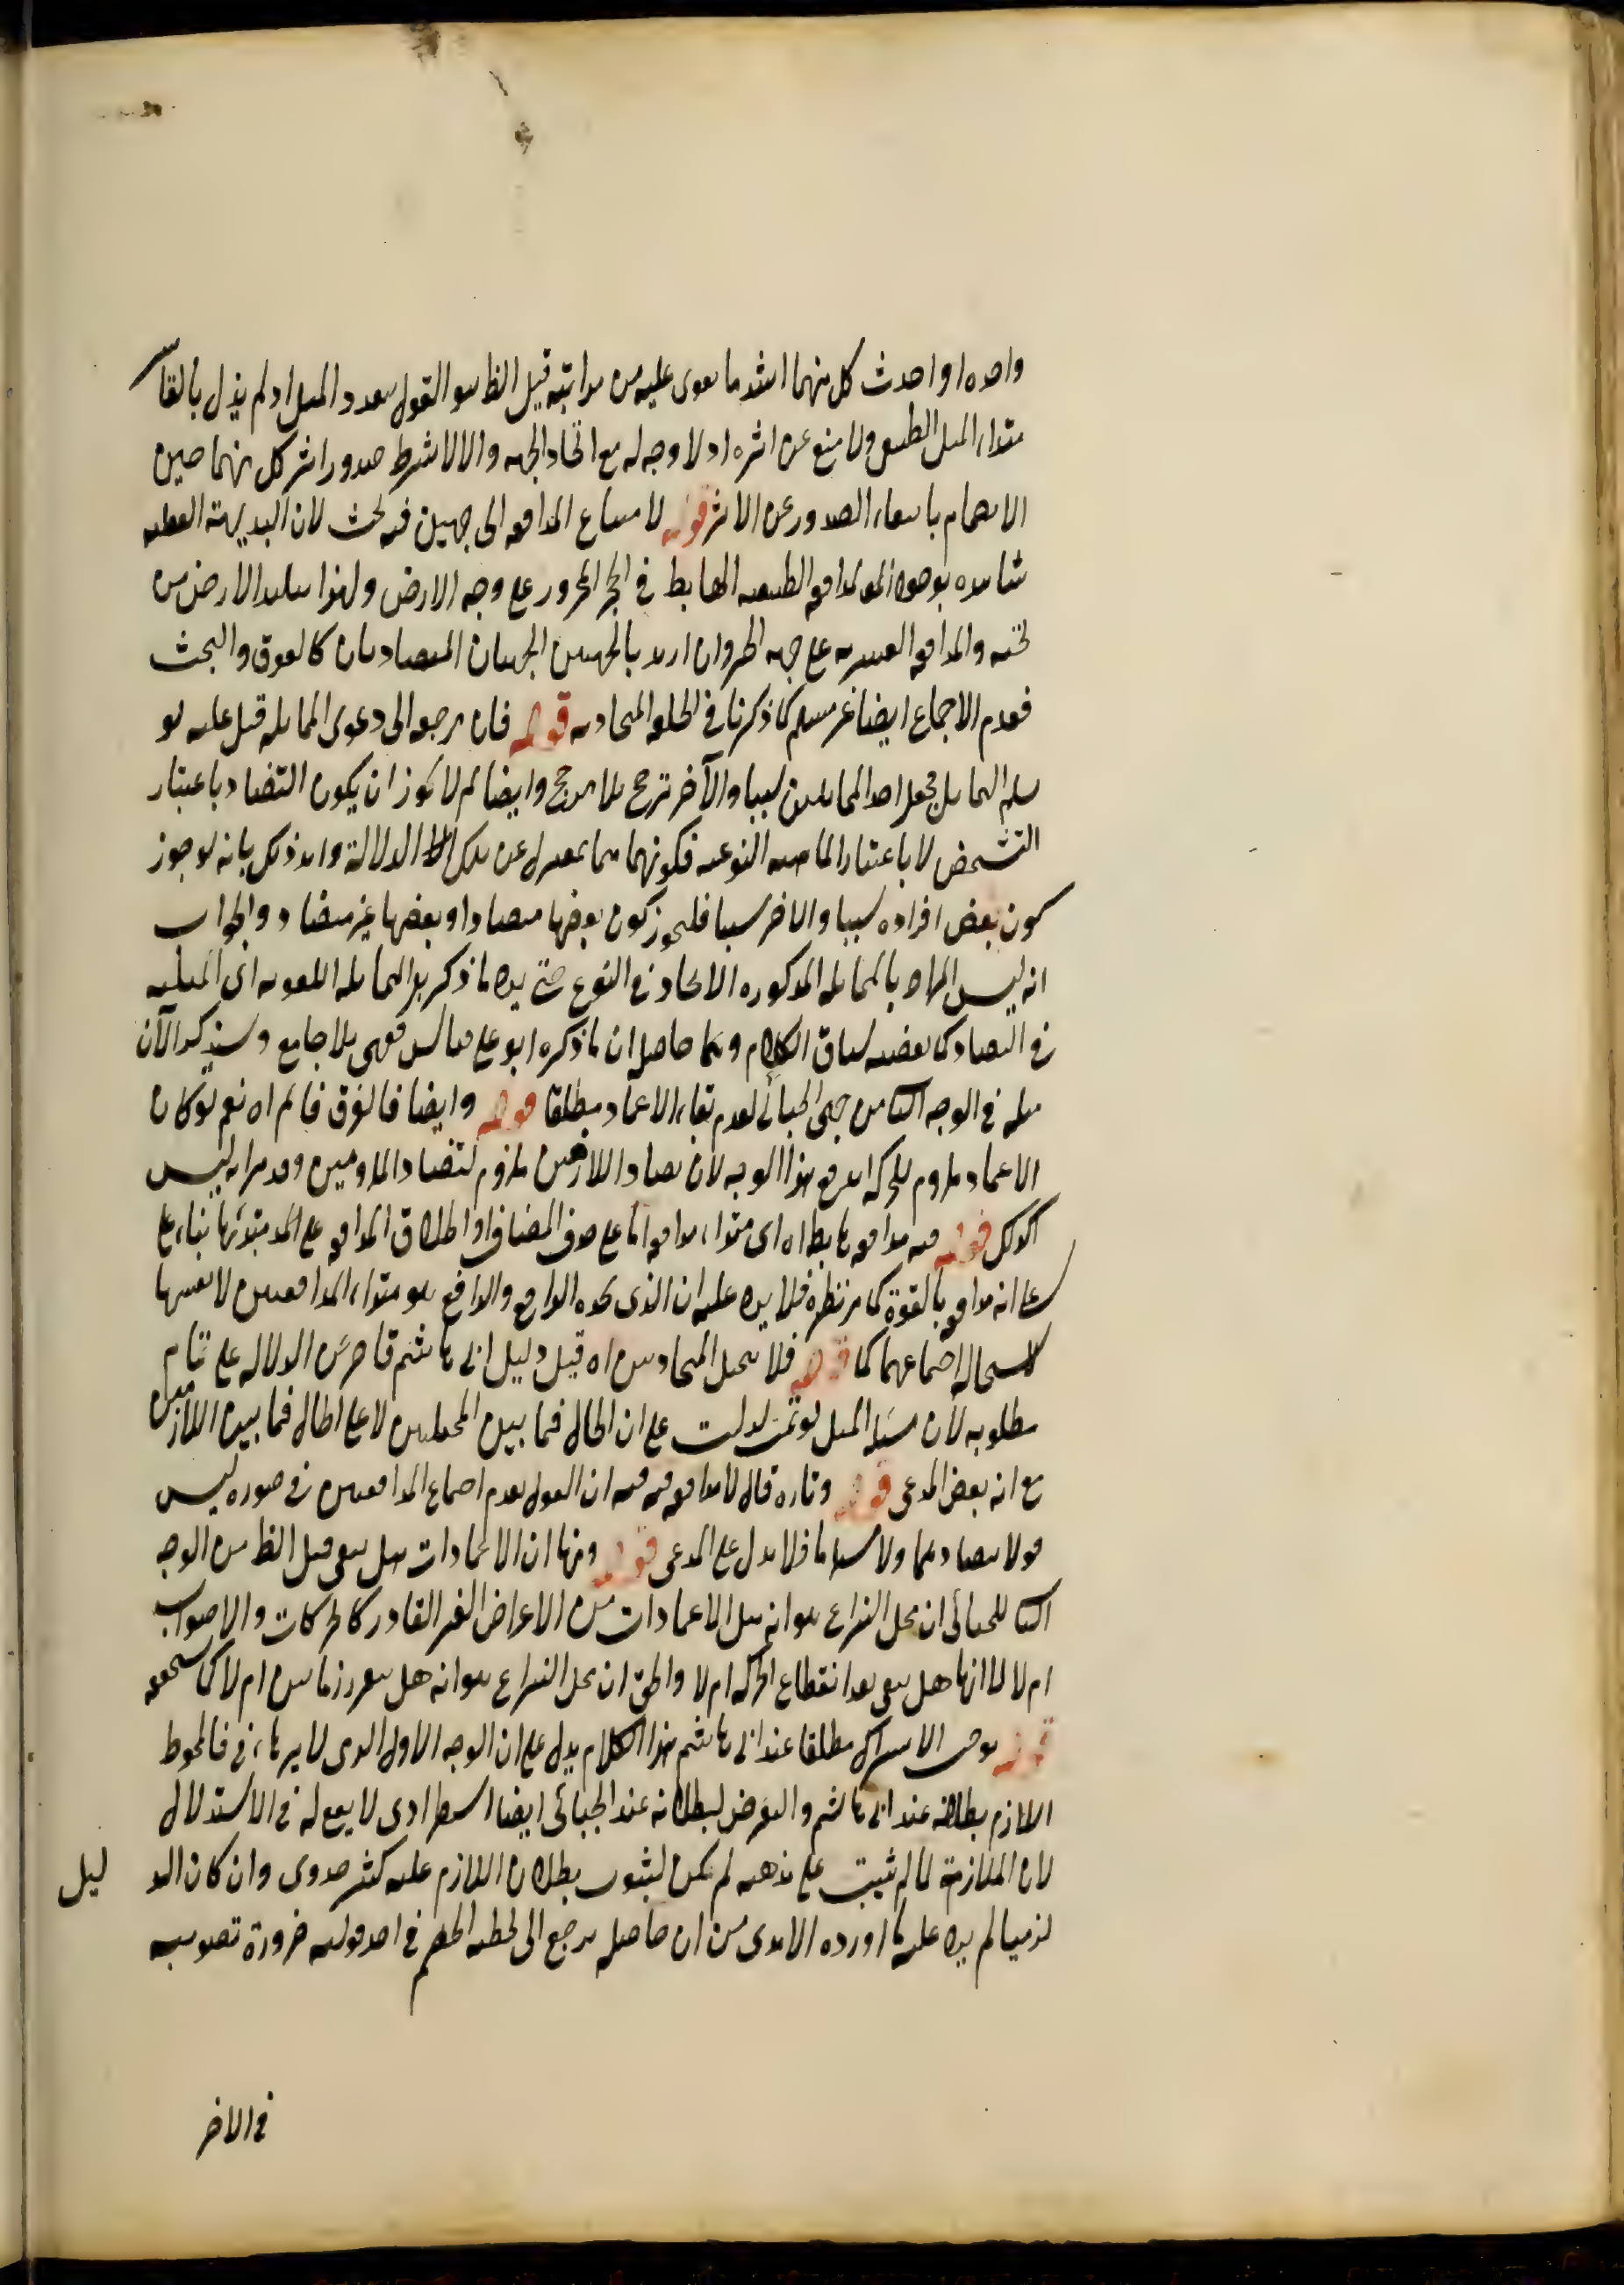 واحدة او احدث كل منهما اشد ما يقوى عليه من مراتبه قيل الظ هو القول بتعدد الميل اذ لم يزل بالقاسر
مبتداء الميل الطبيعى ولا منع عن اثره اذ لا وجه له مع اتحاد الجهة والالا شرط صدور اثر كل منهما حين
بانتفاء الصدور عن الاثر قوله لامتناع المدافعة الى جهتين فيه بحث لان البديهة العقلية
شاهدة بوجود المدافعة الطبيعية الهابطة فى الحجر المجرور على وجه الارض ولهذا الارض من
تحته والمدافعة القسرية على جهة الجر وان اريد بالجهتين الجهتان المتضادتان كالفوق والتحت
فعدم الاجتماع ايضا غير مسلم كما ذكرنا فى الحلقة المتجاذبة قوله فان رجع الى دعوى المماثلة قيل عليه لو
سلم التماثل فجعل احد المتماثلين سببا والآخر ترجح بلا مرجح وايضا لم لا يجوز ان يكون التضاد باعتبار
التشخص لا باعتبار الماهية النوعية فكونهما بمعزل عن تلك الدلالة وايد ذلك بانه لو جوز
كون بعض افراده سببا والاخر سببا فليجوز كون بعضها متضادا وبعضها غير متضاد والجواب
انه ليس المراد بالمماثلة المذكورة الاتحاد فى النوع حتى يرد ما ذكر بل المماثلة اللغوية اى المثلية
فى التضاد كما يقتضيه سياق الكلام حاصله ان ما ذكره ابو على قياس فقهى بلا جامع وسيذكر الآن
مثله فى الوجه الثامن حجتى الجبائى لعدم بقاء الاعتماد مطلقا قوله وايضا فالفرق قائم اه نعم لو كان
الاعتماد ملزوم للحركة اندفع هذا الوجه لان تضاد اللازمين ملزوم لتضاد الملزومين وقد مر انه ليس
كذلك قوله فيه مدافعة هابطة اه اى مبتداء مدافعة اما على حذف المضاف او اطلاق المدافعة على مبتدئها بناء على
على انه مدافعة بالقوة كما مر نظيره فلا يرد عليه ان الذى يجده الدافع والدافع هو مبتداء المدافعتين لا نفسها
لاستحالة اجتماعهما كما قوله فلا بين المتجاذبين اه قيل دليل ابى هاشم قاصر عن الدلالة على تمام
مطلوبه لان مسئلة الحبل لو تمت لدلت على ان الحال فيما بين المختلفين لا على الحال فيما بين اللازمين
مع انه بعض المدعى قوله وتارة قال لا مدافعة فيه فيه ان القول بعدم اجتماع المدافعتين فى صورة ليس
قولا بتضادهما فلا يدل على المدعى قوله ومنها ان الاعتمادات هل يبقى قيل الظ من الوجه
للجبائى ان محل النزاع هو انه هل الاعتمادات من الاعراض الغير القارة كالحركات والاصوات
ام لا لا انها هل يبقى بعد انقطاع الحركة ام لا والحق ان محل النزاع هو انه هل زمانين ام لا كما
قوله يوجب الاشتراك مطلقا عند ابى هاشم هذا الكلام يدل على ان الوجه الاول الذى لا فالملحوظ
اللازم بطلانه عند ابى هاشم والتعرض لبطلانه عند الجبائى ايضا استطرادى لا يقع له فى الاستدلال
لان الملازمة لما لم تثبت على مذهبه لم يكن لثبوت بطلان اللازم عليه كثير جدوى وان كان الد
ليل
لزميا لم يرد عليه ما اورده الآمدى من ان حاصله يرجع الى تخطئة الخصم فى احد قوليه ضرورة تصويبه
فى الاخر